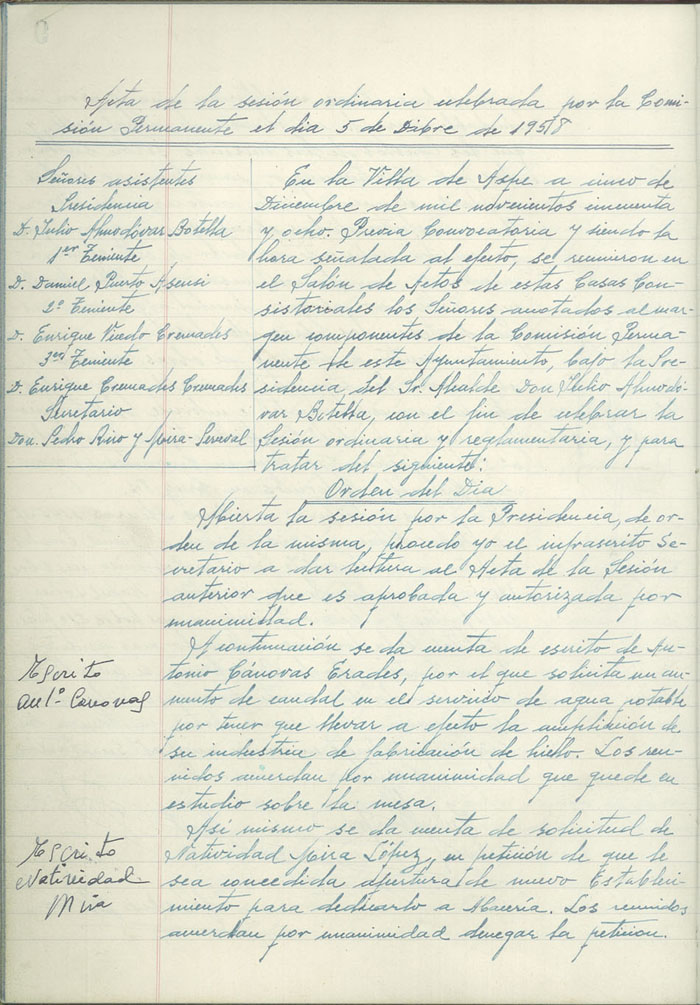 Acta de la sesión ordinaria celebrada por la Comi-
sión Permanente el dia 5 de Dibre de 1958
Señores asistentes
Presidencia
D. Julio Almodóvar Botella
1er Teniente
D. Daniel Puerto Asensi
2º Teniente
D. Enrique Cremades
3er Teniente
D. Enrique Cremades Cremades
Secretario
Don Pedro y Mira-Perceval
En la Villa de Aspe a cinco de
Diciembre de mil novecientos cincuenta
y ocho. Previa Convocatoria y siendo la
hora señalada al efecto, se reunieron en
el Salón de Actos de estas Casas Con-
sistoriales los Señores anotados al mar-
gen componentes de la Comisión Perma-
nente de este Ayuntamiento, bajo la Pre-
sidencia del Sr. Alcalde Don Julio Almodó-
var Botella, con el fin de celebrar la
Sesión ordinaria y reglamentaria, y para
tratar del siguiente:
Orden del Dia
Abierta la sesión por la Presidencia, de or-
den de la misma, procedo yo el infrascrito Se-
cretario a dar lectura al Acta de la Sesión
anterior que es aprobada y autorizada por
unanimidad.
Escrito
Antº Canovas
A continuación se da cuenta de escrito de An-
tonio Cánovas Erades, por el que solicita un au-
mento de caudal en el servicio de agua potable
por tener que llevar a efecto la ampliación de
su industria de fabricación de hielo. Los reu-
nidos acuerdan por unanimidad que quede en
estudio sobre la mesa.
Escrito
Natividad
Mira
Así mismo se da cuenta de solicitud de
Natividad Mira López, en petición de que le
sea concedida apertura de nuevo Estableci-
miento para dedicarlo a Abacería. Los reunidos
acuerdan por unanimidad denegar la petición.